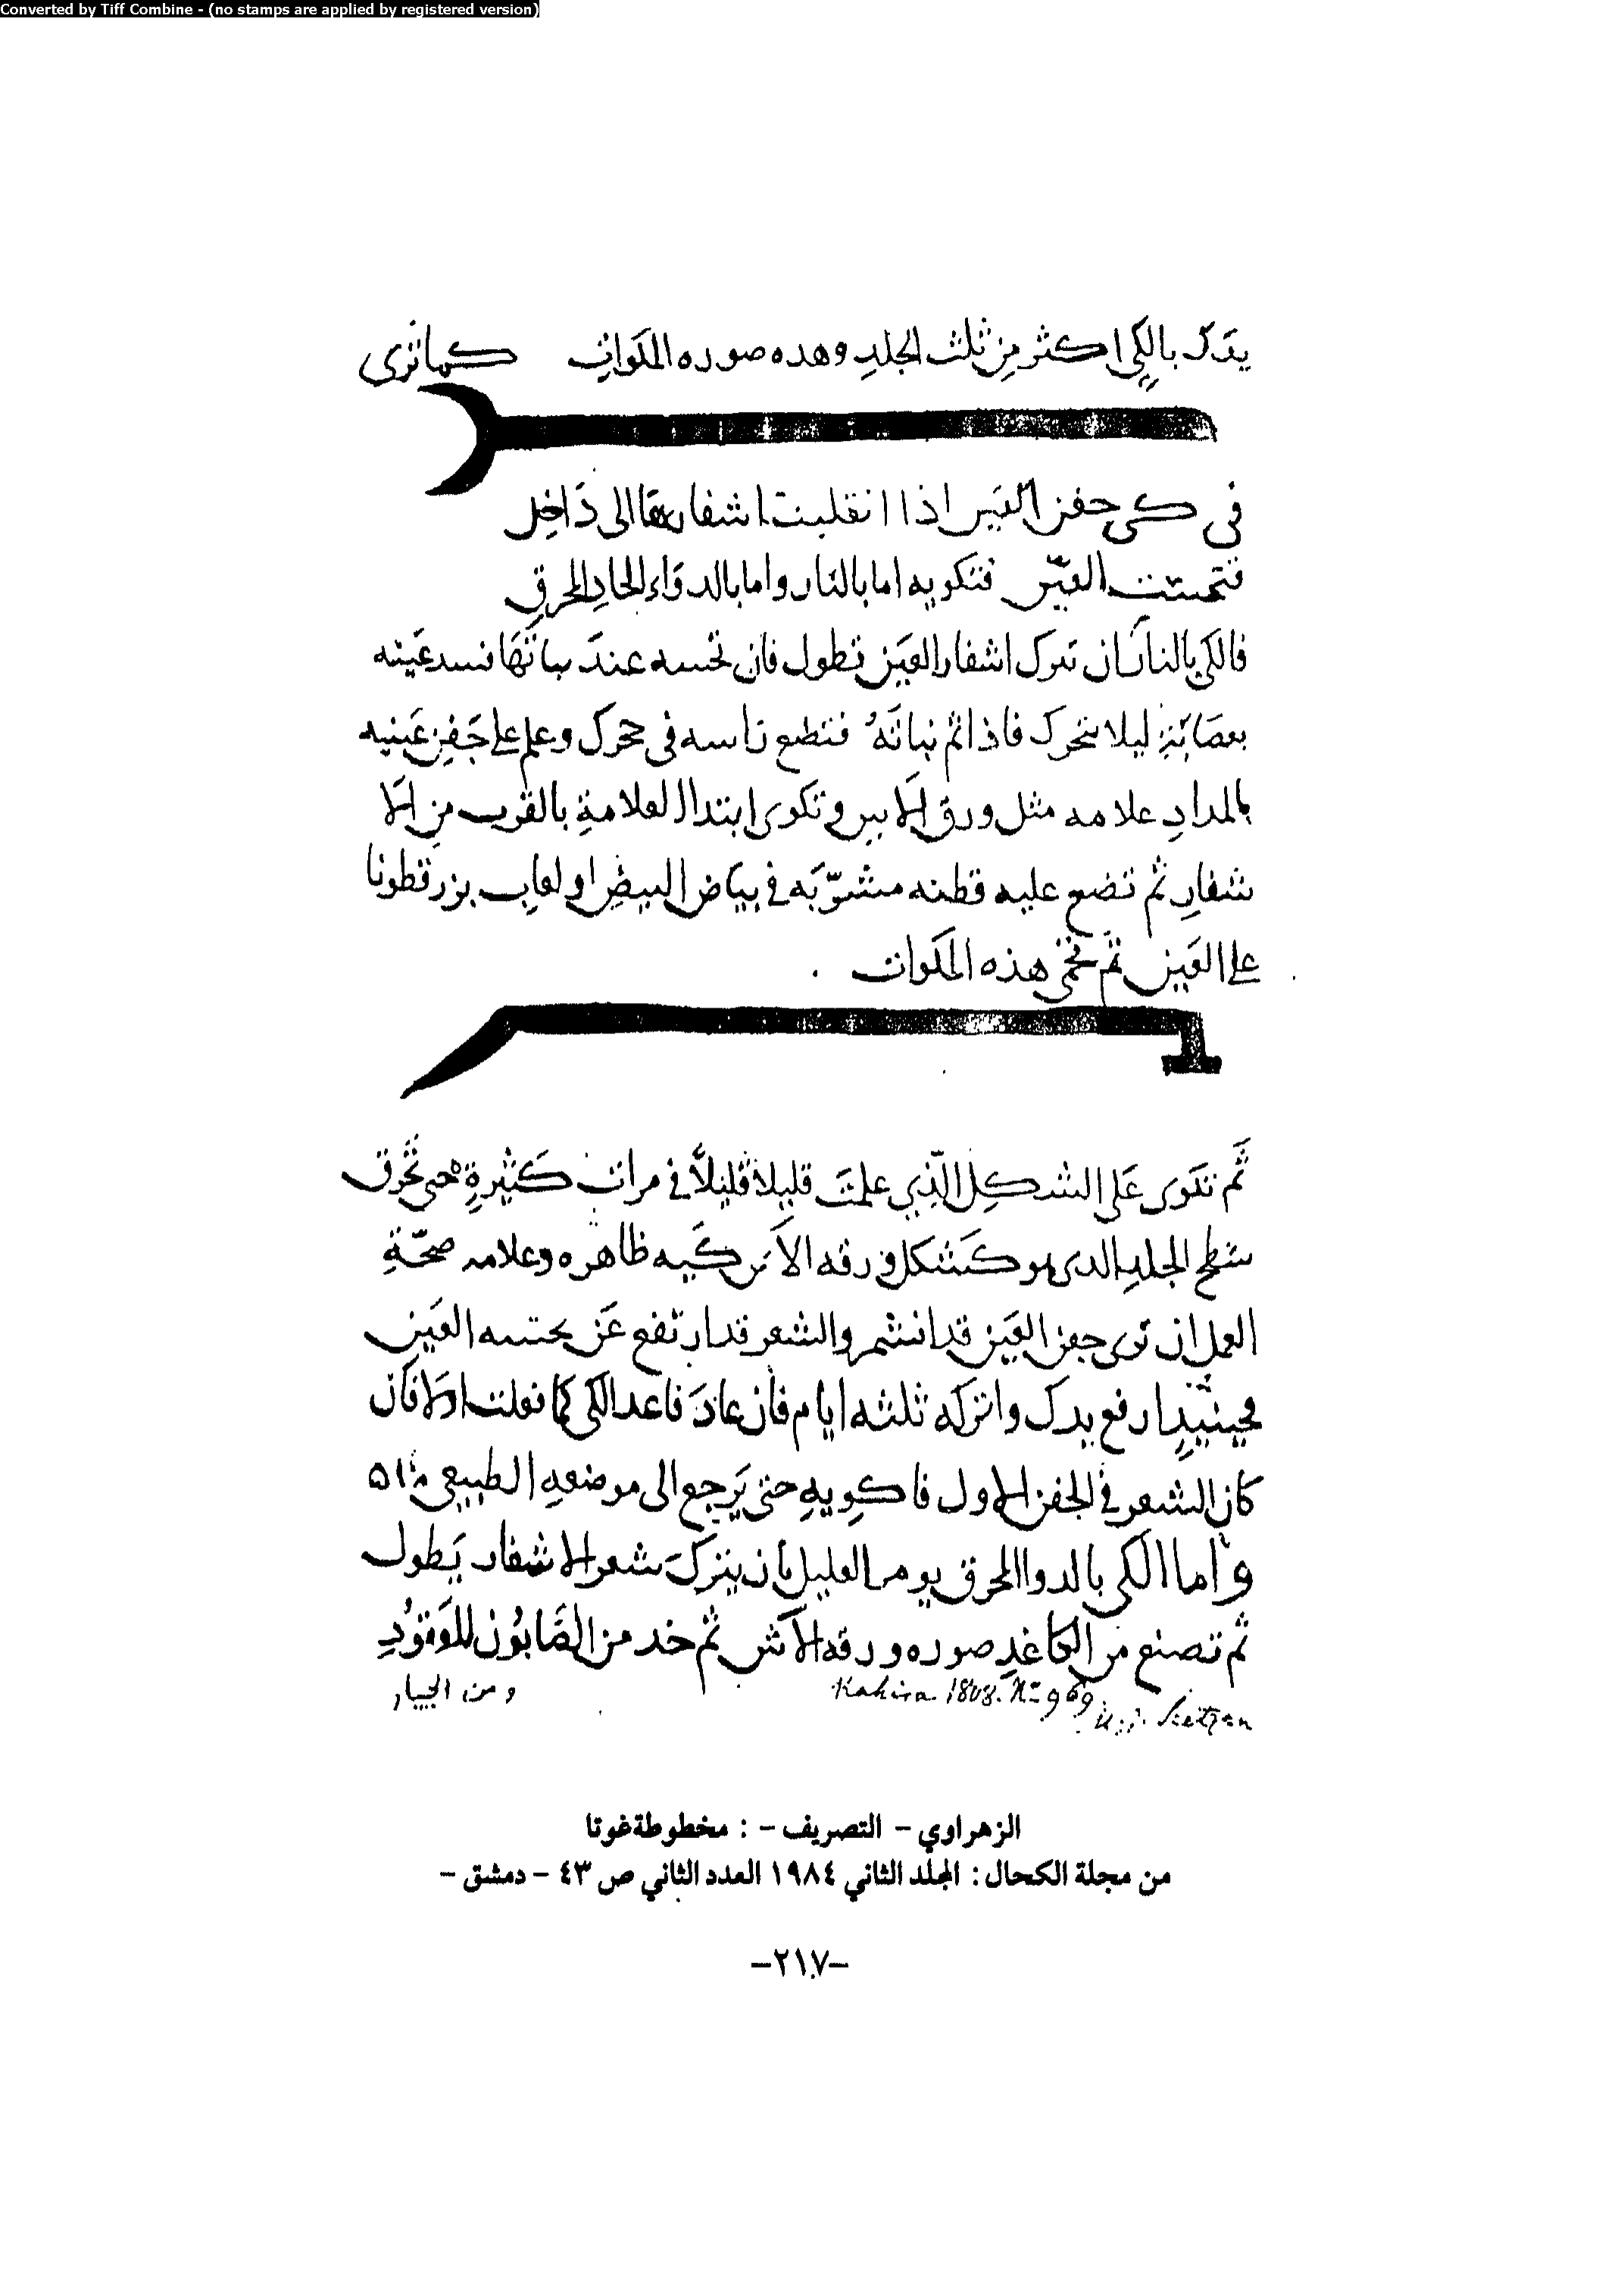 Converted by Tiff Combine - (no stamps are applied by registered version)
يدك بالكي اكثر من ثلث الجلد وهده صوره المكواة كما ترى
في كي جفن العين اذا انقلبت اشفارها الى داخل
العين فتكويه اما بالنار واما بالدواء الحاد المحرق
فالكي بالنار ان تترك اشفار العين تطول فان عند نباتها فسد عينه
ليلا يتحرك فاذا تم نباته فتضع راسه في حجرك وعلم على جفن عينيه
بالمداد علامه مثل ورق الاس وتكوى ابتدا العلامة بالقرب من الا
شفار ثم تضع عليه قطنه مشربه في بياض البيض او لعاب بزر قطونا
على العين ثم تحمي هذه المكواة
ثم تكوى على الشكل الذي علمت قليلا قليلا في مرات كثيرة حتى تحرق
سطح الجلد الدى هو كشكل ورقه الاس كيه ظاهره وعلامه صحة
العمل ان ترى جفن العين قد انشمر والشعر قد ارتفع عن العين
فحينيذ ارفع يدك واتركه ثلثه ايام فان عاد فاعد الكي كما فعلت اولا فان
كان الشعر في الجفن الاول فاكويه حتى يرجع الى موضعه الطبيعي
واما الكي بالدوا المحرق العليل بان يترك شعر الاشفار يطول
ثم تصنع من الكاغد صوره ورقه الاس ثم خد من الصابون
ومن الجيار
Kahira. 1808. N= 969
الزهراوي - التصريف - : مخطوطة غوتا
من مجلة الكحال : المجلد الثاني ١٩٨٤ العدد الثاني ص ٤٣ - دمشق -
-٢١٧-